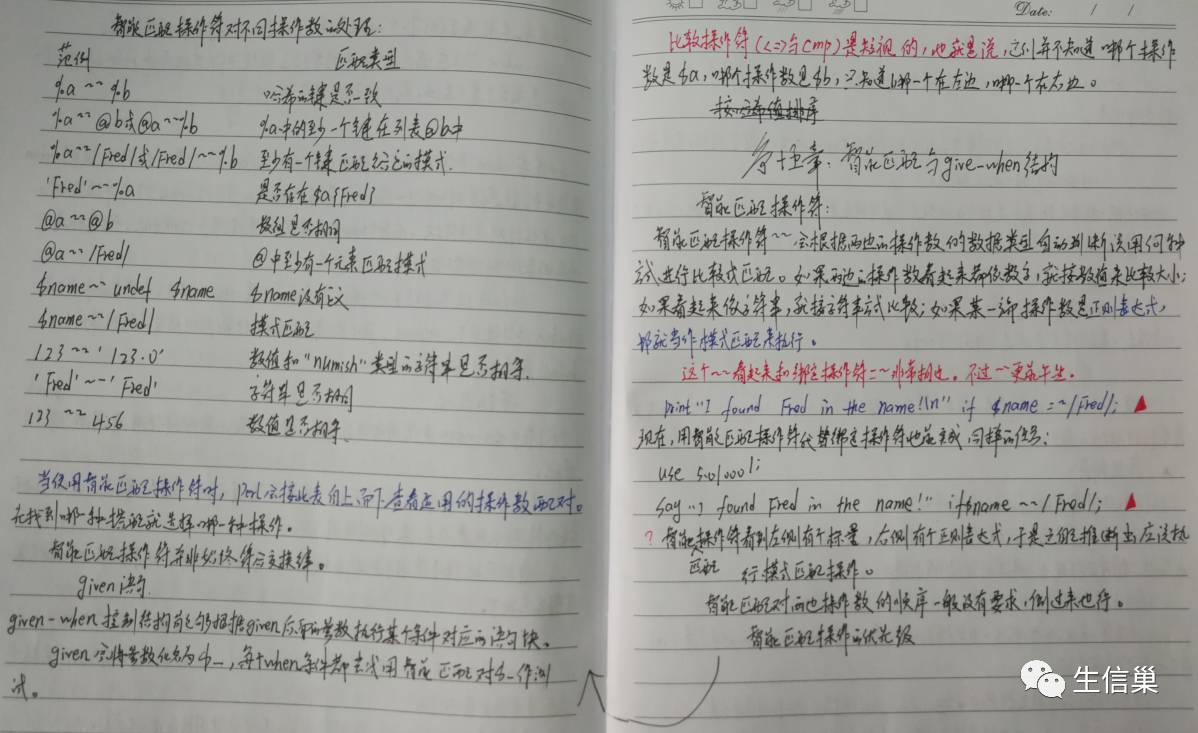 智能匹配操作符对不同操作数的处理:
范例 匹配类型
%a ~~ %b 哈希的键是否一致
%a ~~ @b或@a ~~ %b %a中的至少一个键在列表@b中
%a ~~ /Fred/或/Fred/ ~~ %b 至少有一个键匹配给定的模式.
'Fred' ~~ %a 是否存在$a{Fred}
@a ~~ @b 数组是否相同
@a ~~ /Fred/ @中至少有一个元素匹配模式
$name ~~ undef $name $name没有定义
$name ~~ /Fred/ 模式匹配
123 ~~ '123.0' 数值和"numish"类型的字符串是否相等.
'Fred' ~~ 'Fred' 字符串是否相同
123 ~~ 456 数值是否相等.
当使用智能匹配操作符时, Perl会按此表自上而下查看适用的操作数配对。
先找到哪一种搭配就选择哪一种操作。
智能匹配操作符并非始终符合交换律。
given语句
given-when控制结构能够根据given后面的参数执行某个条件对应的语句块。
given会将参数化名为$_, 每个when条件都尝试用智能匹配对$_作测
试。
Date: / /
比较操作符(<=>与cmp)是短视的,也就是说,它们并不知道哪个操作
数是$a,哪个操作数是$b,只知道哪一个在左边,哪一个在右边。
按哈希值排序
第十五章: 智能匹配与give-when结构
智能匹配操作符:
智能匹配操作符~~会根据两边的操作数的数据类型自动判断该用何种
式进行比较或匹配。如果两边的操作数看起来都像数字,就按数值来比较大小;
如果看起来像字符串,就按字符串式比较;如果某一端操作数是正则表达式,
那就当作模式匹配来执行。
这个~~看起来和绑定操作符=~非常相近。不过~~更能干些.
print "I found Fred in the name!\n" if $name =~ /Fred/;
现在,用智能匹配操作符代替绑定操作符也能变成同样的任务:
use 5.010001;
say "I found Fred in the name!" if $name ~~ /Fred/;
? 智能匹配操作符看到左侧有个标量,右侧有个正则表达式,于是它自己推断出应该执
行模式匹配操作。
智能匹配对两边操作数的顺序一般没有要求,倒过来也行。
智能匹配操作的优先级
生信巢